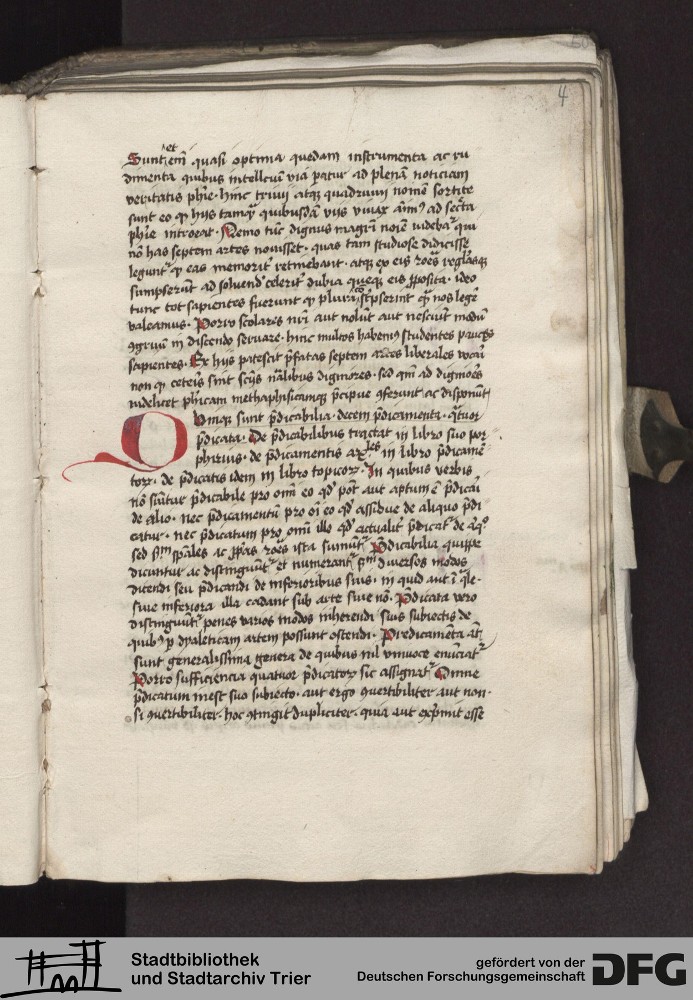 4
et
Sunt em̄ quasi optima quedam instrumenta ac ru
dimenta quibus intellcūi via p̄atur ad plenā noticiam
veritatis phīe · hinc trivij atqꝫ quadruvij nomen̄ sortite
sunt eo ꝙ hijs tamqꝫ quibusdā vijs vivax aīmꝯ ad secr̄ta
phīe introeat · Nemo tūc dignus magr̄i noīe videbat̄ qui
nō has septem artes novisset · quas tam studiose didicisse
legunt̄ ꝙ eas memorit̄ retinebant · atqꝫ ex eis roēs reglasqꝫ
sumpserūt ad solvend celerit̄ dubia queqꝫ eis ꝓposita · ideo
tunc tot sapientes fuerunt ꝙ plura scp̄serint qꝫ nos legē
valeamus · Porro scolares nr̄i aut nolūt aut nesciūt modū
ꝯgruū in discendo servare · hinc multos habemꝯ studentes paucos
sapientes · Ex hijs patescit p̄fatas septem artes liberales vocāī
non ꝙ ceteris sint scijs nālibus digniores · sed qm̄ ad digniōes
videlicet phicam methaphisicamqꝫ p̄cipue ꝯferunt ac disponūt
Quinqꝫ sunt p̄dicabilia · decem p̄dicamenta · q̄tuor
p̄dicata · De p̄dicabilibus tractat in libro suo por
phirius · de p̄dicamentis arl̄es in libro p̄dicamē
torꝝ · de p̄dicatis idem in libro topicorꝝ · In quibus verbis
nō sūitur p̄dicabile pro om̄i eo qd̄ pōt aut aptum ē p̄dicāī
de alio · nec p̄dicamentū pro oī eo qd̄ assidue de aliquo p̄di
catur · nec p̄dicatum pro om̄i illo qd̄ actualit̄ p̄dicat̄ de aꝗꝯ
sed sm̄ spāles ac ꝓp̄as roēs ista sumūt̄ · P̄dicabilia quippe
dicuntur ac distingunt̄ et numerant̄ sm̄ diversos modos
dicendi seu p̄dicandi de inferioribus suis · in quid aut ī q̄le ·
sive inferiora illa cadant sub arte sive nō · P̄dicata vero
distingunt̄ penes varios modos inherendi suis subiectis de
quibꝯ ꝑ dyaleticam artem possunt ostendi · Predicamēta āt
sunt generalissima genera de quibus nil vnivoce enūciat̄
Porro sufficiencia quatuor p̄dicatorꝝ sic assignat̄ · Omne
p̄dicatum inest suo subiecto · aut ergo ꝯvertibiliter · aut non ·
si ꝯvertibiliter · hoc ꝯtingit dupliciter · quia aut exp̄mit esse
Stadtbibliothek
und Stadtarchiv Trier
gefördert von der
Deutschen Forschungsgemeinschaft
DFG